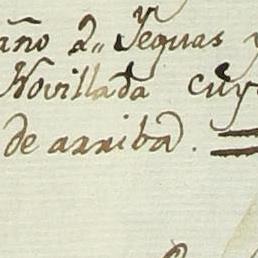 año 2,, Yeguas y
Novillada cuy
de arriba. =